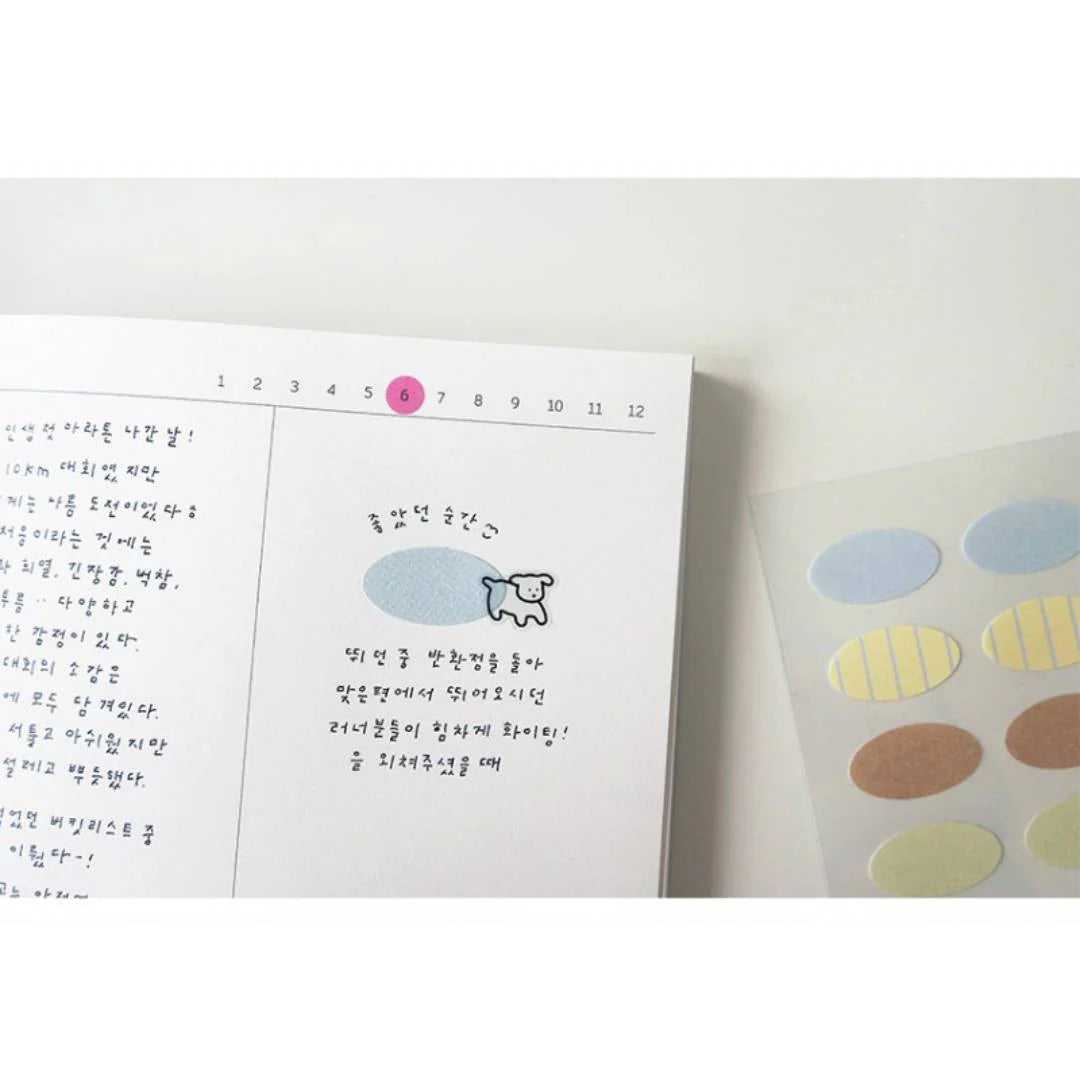 1 2 3 4 5 6 7 8 9 10 11 12
인생 첫 마라톤 나간 날!
10km 대회였지만
나름 도전이었다
처음이라는 것에는
희열, 긴장감, 벅참,
다양하고
감정이 있다.
대회의 소감은
모두 담겨있다.
서툴고 아쉬웠지만
설레고 뿌듯했다.
버킷리스트 중
이뤘다~!
좋았던 순간
뛰던 중 반환점을 돌아
맞은편에서 뛰어오시던
러너분들이 힘차게 화이팅!
을 외쳐주셨을 때